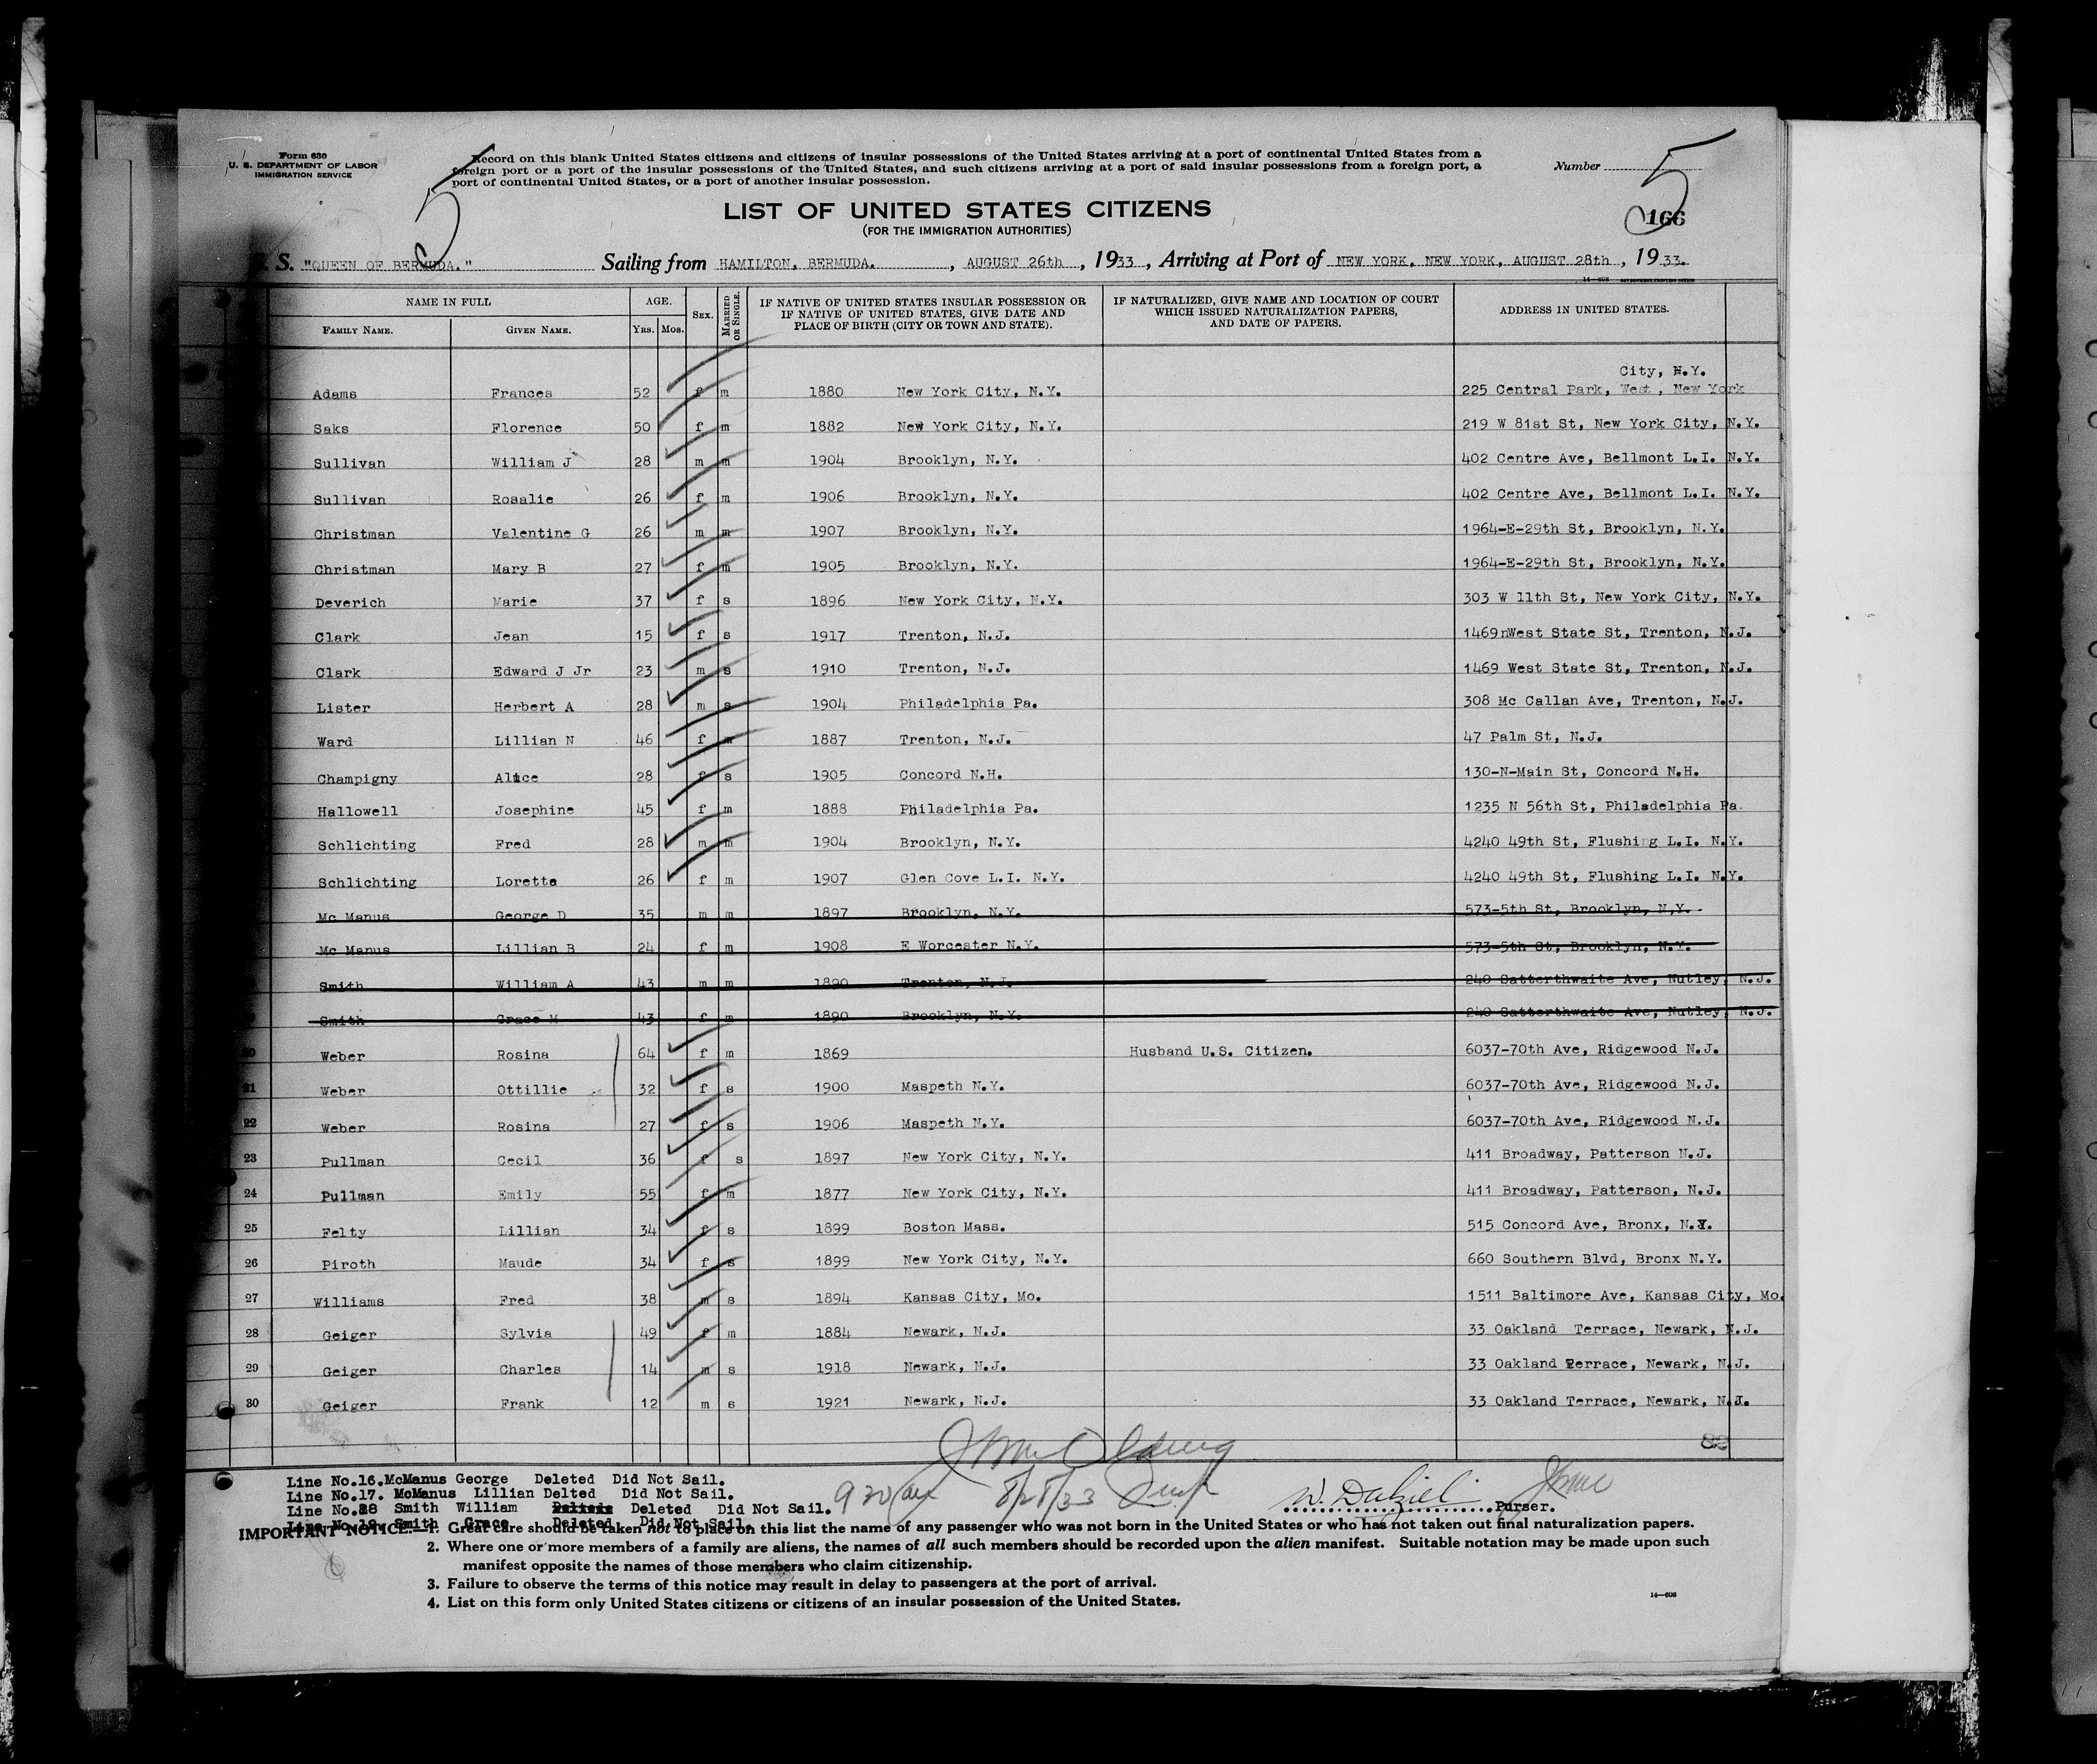 Form 630
U. S. DEPARTMENT OF LABOR
IMMIGRATION SERVICE
Record on this blank United States citizens and citizens of insular possessions of the United States arriving at a port of continental United States from a
foreign port or a port of the insular possessions of the United States, and such citizens arriving at a port of said insular possessions from a foreign port, a
port of continental United States, or a port of another insular possession.
Number
5
5
166
LIST OF UNITED STATES CITIZENS
(FOR THE IMMIGRATION AUTHORITIES)
S. "QUEEN OF BERMUDA." Sailing from HAMILTON, BERMUDA. , AUGUST 26th , 1933 , Arriving at Port of NEW YORK, NEW YORK, AUGUST 28th , 1933.
14—608
NAME IN FULL AGE. SEX. MARRIED OR SINGLE. IF NATIVE OF UNITED STATES INSULAR POSSESSION OR IF NATIVE OF UNITED STATES, GIVE DATE AND PLACE OF BIRTH (CITY OR TOWN AND STATE). IF NATURALIZED, GIVE NAME AND LOCATION OF COURT WHICH ISSUED NATURALIZATION PAPERS, AND DATE OF PAPERS. ADDRESS IN UNITED STATES.
FAMILY NAME. GIVEN NAME. YRS. MOS.
City, N.Y.
Adams Frances 52 f m 1880 New York City, N.Y. 225 Central Park, West, New York
Saks Florence 50 f m 1882 New York City, N.Y. 219 W 81st St, New York City, N.Y.
Sullivan William J 28 m m 1904 Brooklyn, N.Y. 402 Centre Ave, Bellmont L.I. N.Y.
Sullivan Rosalie 26 f m 1906 Brooklyn, N.Y. 402 Centre Ave, Bellmont L.I. N.Y.
Christman Valentine G 26 m m 1907 Brooklyn, N.Y. 1964-E-29th St, Brooklyn, N.Y.
Christman Mary B 27 f m 1905 Brooklyn, N.Y. 1964-E-29th St, Brooklyn, N.Y.
Deverich Marie 37 f s 1896 New York City, N.Y. 303 W 11th St, New York City, N.Y.
Clark Jean 15 f s 1917 Trenton, N.J. 1469nWest State St, Trenton, N.J.
Clark Edward J Jr 23 m s 1910 Trenton, N.J. 1469 West State St, Trenton, N.J.
Lister Herbert A 28 m s 1904 Philadelphia Pa. 308 Mc Callan Ave, Trenton, N.J.
Ward Lillian N 46 f m 1887 Trenton, N.J. 47 Palm St, N.J.
Champigny Alice 28 f s 1905 Concord N.H. 130-N-Main St, Concord N.H.
Hallowell Josephine 45 f m 1888 Philadelphia Pa. 1235 N 56th St, Philadelphia Pa.
Schlichting Fred 28 m m 1904 Brooklyn, N.Y. 4240 49th St, Flushing L.I. N.Y.
Schlichting Loretta 26 f m 1907 Glen Cove L.I. N.Y. 4240 49th St, Flushing L.I. N.Y.
Mc Manus George D 35 m m 1897 Brooklyn, N.Y. 573-5th St, Brooklyn, N.Y.
Mc Manus Lillian B 24 f m 1908 E Worcester N.Y. 573-5th St, Brooklyn, N.Y.
Smith William A 43 m m 1890 Trenton, N.J. 240 Satterthwaite Ave, Nutley, N.J.
Smith Grace M 43 f m 1890 Brooklyn, N.Y. 240 Satterthwaite Ave, Nutley, N.J.
20 Weber Rosina 64 f m 1869 Husband U.S. Citizen. 6037-70th Ave, Ridgewood N.J.
21 Weber Ottillie 32 f s 1900 Maspeth N.Y. 6037-70th Ave, Ridgewood N.J.
22 Weber Rosina 27 f s 1906 Maspeth N.Y. 6037-70th Ave, Ridgewood N.J.
23 Pullman Cecil 36 f s 1897 New York City, N.Y. 411 Broadway, Patterson N.J.
24 Pullman Emily 55 f m 1877 New York City, N.Y. 411 Broadway, Patterson, N.J.
25 Felty Lillian 34 f s 1899 Boston Mass. 515 Concord Ave, Bronx, N.Y.
26 Piroth Maude 34 f s 1899 New York City, N.Y. 660 Southern Blvd, Bronx N.Y.
27 Williams Fred 38 m s 1894 Kansas City, Mo. 1511 Baltimore Ave, Kansas City, Mo.
28 Geiger Sylvia 49 f m 1884 Newark, N.J. 33 Oakland Terrace, Newark, N.J.
29 Geiger Charles 14 m s 1918 Newark, N.J. 33 Oakland Terrace, Newark, N.J.
30 Geiger Frank 12 m s 1921 Newark, N.J. 33 Oakland Terrace, Newark, N.J.
Line No.16.McManus George Deleted Did Not Sail.
Line No.17. McManus Lillian Delted Did Not Sail.
Line No.18 Smith William Deleted Did Not Sail.
Line No.19. Smith Grace Deleted Did Not Sail.
9 20 am 8/28/33
W. Dalziel Purser.
IMPORTANT NOTICE.—1. Great care should be taken not to place on this list the name of any passenger who was not born in the United States or who has not taken out final naturalization papers.
2. Where one or more members of a family are aliens, the names of all such members should be recorded upon the alien manifest. Suitable notation may be made upon such
manifest opposite the names of those members who claim citizenship.
3. Failure to observe the terms of this notice may result in delay to passengers at the port of arrival.
4. List on this form only United States citizens or citizens of an insular possession of the United States.
14—608